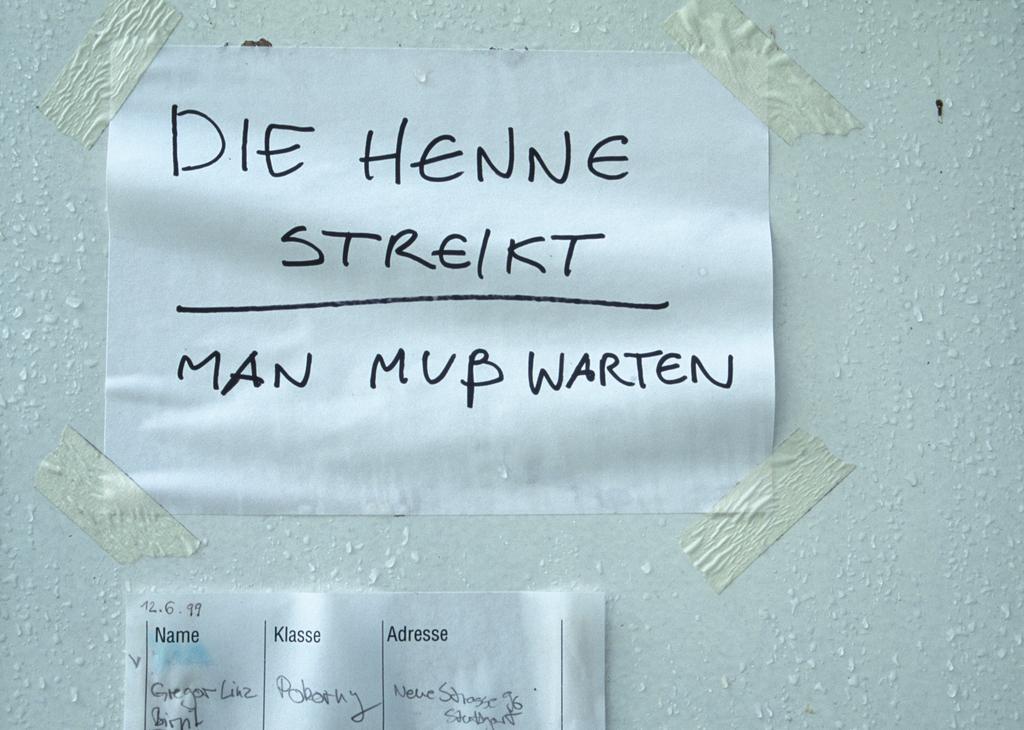 DIE HENNE
STREIKT
MAN MUß WARTEN
12.6.99
Name Klasse Adresse
Gregor Linz Pokorny Neue Strasse 96
Stuttgart